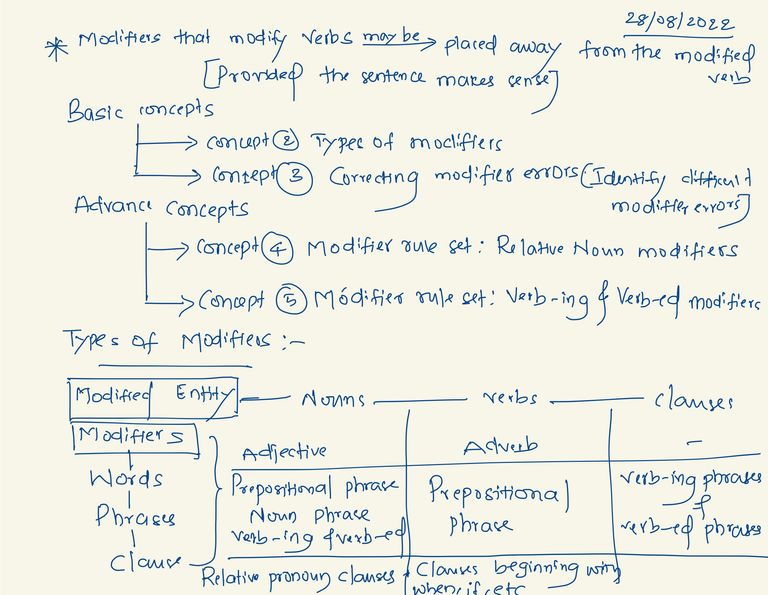 28/08/2022
* Modifiers that modify verbs may be → placed away from the modified verb
[Provided the sentence makes sense]
Basic concepts
→ concept ② Types of modifiers
→ Concept ③ Correcting modifier errors [Identify difficult modifier errors]
Advance concepts
→ concept ④ Modifier rule set: Relative Noun modifiers
→ Concept ⑤ Modifier rule set: Verb-ing & Verb-ed modifiers
Types of Modifiers :-
Modified Entity — Nouns — verbs — clauses
Modifiers
Adjective Adverb -
Words
Prepositional phrase Prepositional phrase verb-ing phrases & verb-ed phrases
Phrases
Noun phrase
verb-ing & verb-ed
Clause
Relative pronoun clauses Clauses beginning with when, if, etc